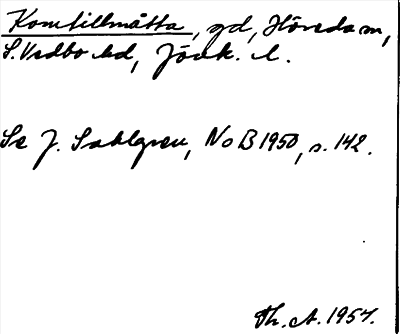 Komtillmåtta, gd, Höreda sn,
S. Vedbo hd, Jönk. l.
Se J. Sahlgren, NoB 1950, s. 142.
Th. A. 1957.